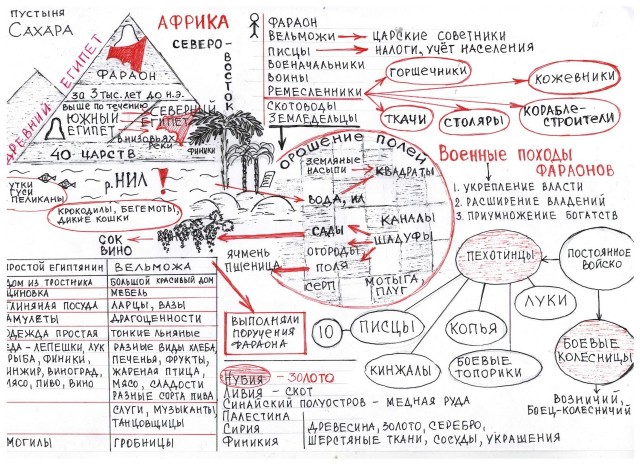 ПУСТЫНЯ
САХАРА
АФРИКА
СЕВЕРО-
ВОСТОК
ДРЕВНИЙ ЕГИПЕТ
ФАРАОН
за 3 тыс. лет до н.э.
ВЫШЕ ПО ТЕЧЕНИЮ
ЮЖНЫЙ
ЕГИПЕТ
СЕВЕРНЫЙ
ЕГИПЕТ
В НИЗОВЬЯХ
РЕКИ
40 ЦАРСТВ
ФИНИКИ
УТКИ
ГУСИ
ПЕЛИКАНЫ
р. НИЛ!
КРОКОДИЛЫ, БЕГЕМОТЫ,
ДИКИЕ КОШКИ
СОК
ВИНО
ФАРАОН
ВЕЛЬМОЖИ → ЦАРСКИЕ СОВЕТНИКИ
ПИСЦЫ → НАЛОГИ, УЧЁТ НАСЕЛЕНИЯ
ВОЕНАЧАЛЬНИКИ
ВОИНЫ
РЕМЕСЛЕННИКИ
СКОТОВОДЫ
ЗЕМЛЕДЕЛЬЦЫ
ГОРШЕЧНИКИ
КОЖЕВНИКИ
ТКАЧИ
СТОЛЯРЫ
КОРАБЛЕ-
СТРОИТЕЛИ
ОРОШЕНИЕ ПОЛЕЙ
ЗЕМЛЯНЫЕ
НАСЫПИ
КВАДРАТЫ
ВОДА, ИЛ
КАНАЛЫ
САДЫ
ШАДУФЫ
ОГОРОДЫ
ПОЛЯ
ЯЧМЕНЬ
ПШЕНИЦА
СЕРП
МОТЫГА,
ПЛУГ
ВОЕННЫЕ ПОХОДЫ
ФАРАОНОВ
1. УКРЕПЛЕНИЕ ВЛАСТИ
2. РАСШИРЕНИЕ ВЛАДЕНИЙ
3. ПРИУМНОЖЕНИЕ БОГАТСТВ
ПЕХОТИНЦЫ
ПОСТОЯННОЕ
ВОЙСКО
ЛУКИ
КОПЬЯ
БОЕВЫЕ
ТОПОРИКИ
КИНЖАЛЫ
ПИСЦЫ
10
БОЕВЫЕ
КОЛЕСНИЦЫ
ВОЗНИЧИЙ,
БОЕЦ-КОЛЕСНИЧИЙ
ВЫПОЛНЯЛИ
ПОРУЧЕНИЯ
ФАРАОНА
РОСТОЙ ЕГИПТЯНИН ВЕЛЬМОЖА
ДОМ ИЗ ТРОСТНИКА БОЛЬШОЙ КРАСИВЫЙ ДОМ
ЦИНОВКА МЕБЕЛЬ
ЛИНЯНАЯ ПОСУДА ЛАРЦЫ, ВАЗЫ
АМУЛЕТЫ ДРАГОЦЕННОСТИ
ДЕЖДА ПРОСТАЯ ТОНКИЕ ЛЬНЯНЫЕ
ЕДА - ЛЕПЕШКИ, ЛУК РАЗНЫЕ ВИДЫ ХЛЕБА,
РЫБА, ФИНИКИ, ПЕЧЕНЬЯ, ФРУКТЫ,
ИНЖИР, ВИНОГРАД, ЖАРЕНАЯ ПТИЦА,
МЯСО, ПИВО, ВИНО МЯСО, СЛАДОСТИ
РАЗНЫЕ СОРТА ПИВА
СЛУГИ, МУЗЫКАНТЫ,
ТАНЦОВЩИЦЫ
МОГИЛЫ ГРОБНИЦЫ
НУБИЯ - ЗОЛОТО
ЛИВИЯ - СКОТ
СИНАЙСКИЙ ПОЛУОСТРОВ - МЕДНАЯ РУДА
ПАЛЕСТИНА
СИРИЯ
ФИНИКИЯ
ДРЕВЕСИНА, ЗОЛОТО, СЕРЕБРО,
ШЕРСТЯНЫЕ ТКАНИ, СОСУДЫ, УКРАШЕНИЯ